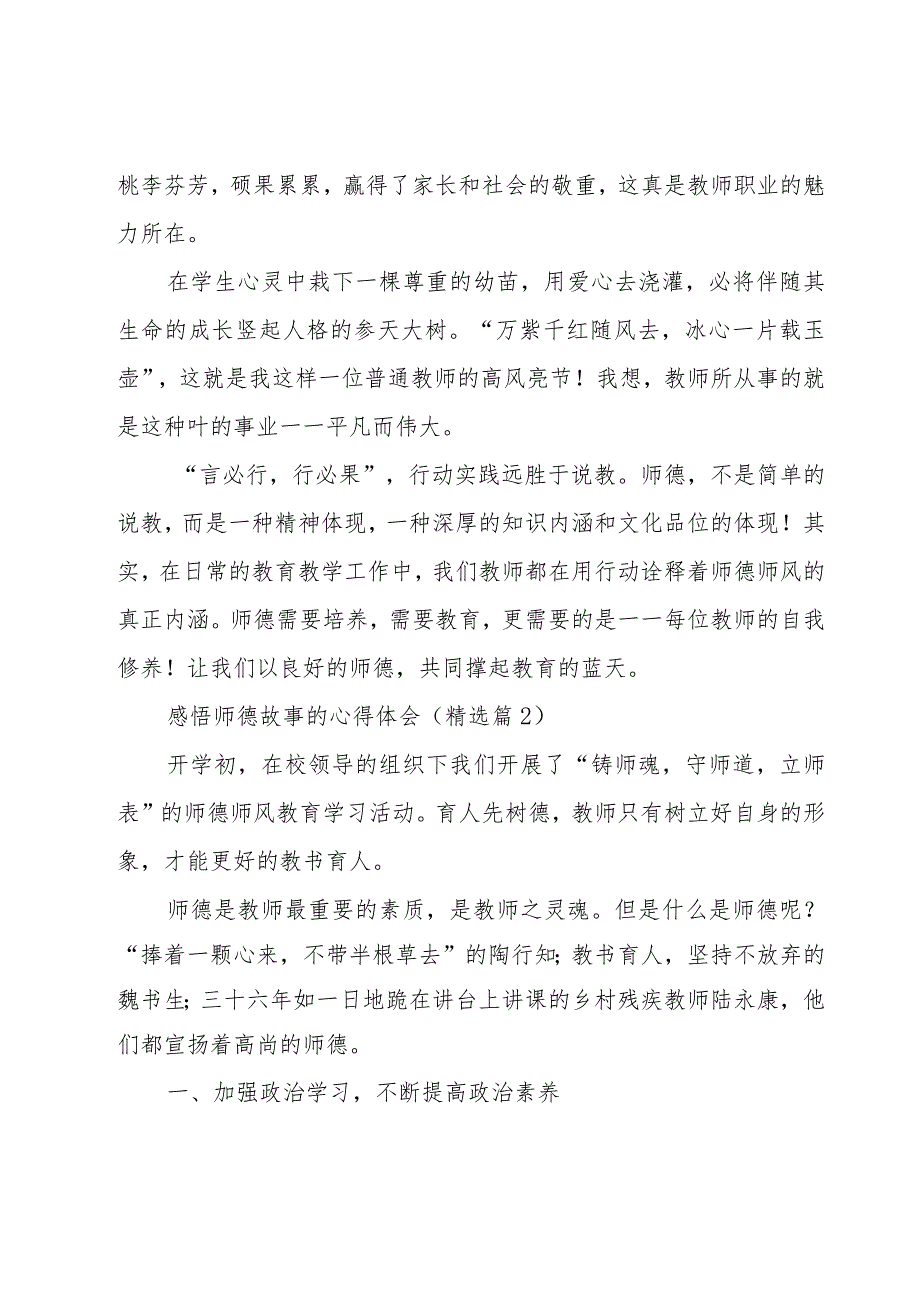 桃李芬芳，硕果累累，赢得了家长和社会的敬重，这真是教师职业的魅
力所在。
在学生心灵中栽下一棵尊重的幼苗，用爱心去浇灌，必将伴随其
生命的成长竖起人格的参天大树。“万紫千红随风去，冰心一片载玉
壶”，这就是我这样一位普通教师的高风亮节！我想，教师所从事的就
是这种叶的事业一一平凡而伟大。
“言必行，行必果”，行动实践远胜于说教。师德，不是简单的
说教，而是一种精神体现，一种深厚的知识内涵和文化品位的体现！其
实，在日常的教育教学工作中，我们教师都在用行动诠释着师德师风的
真正内涵。师德需要培养，需要教育，更需要的是一一每位教师的自我
修养！让我们以良好的师德，共同撑起教育的蓝天。
感悟师德故事的心得体会（精选篇2）
开学初，在校领导的组织下我们开展了“铸师魂，守师道，立师
表”的师德师风教育学习活动。育人先树德，教师只有树立好自身的形
象，才能更好的教书育人。
师德是教师最重要的素质，是教师之灵魂。但是什么是师德呢？
“捧着一颗心来，不带半根草去”的陶行知；教书育人，坚持不放弃的
魏书生；三十六年如一日地跪在讲台上讲课的乡村残疾教师陆永康，他
们都宣扬着高尚的师德。
一、加强政治学习，不断提高政治素养